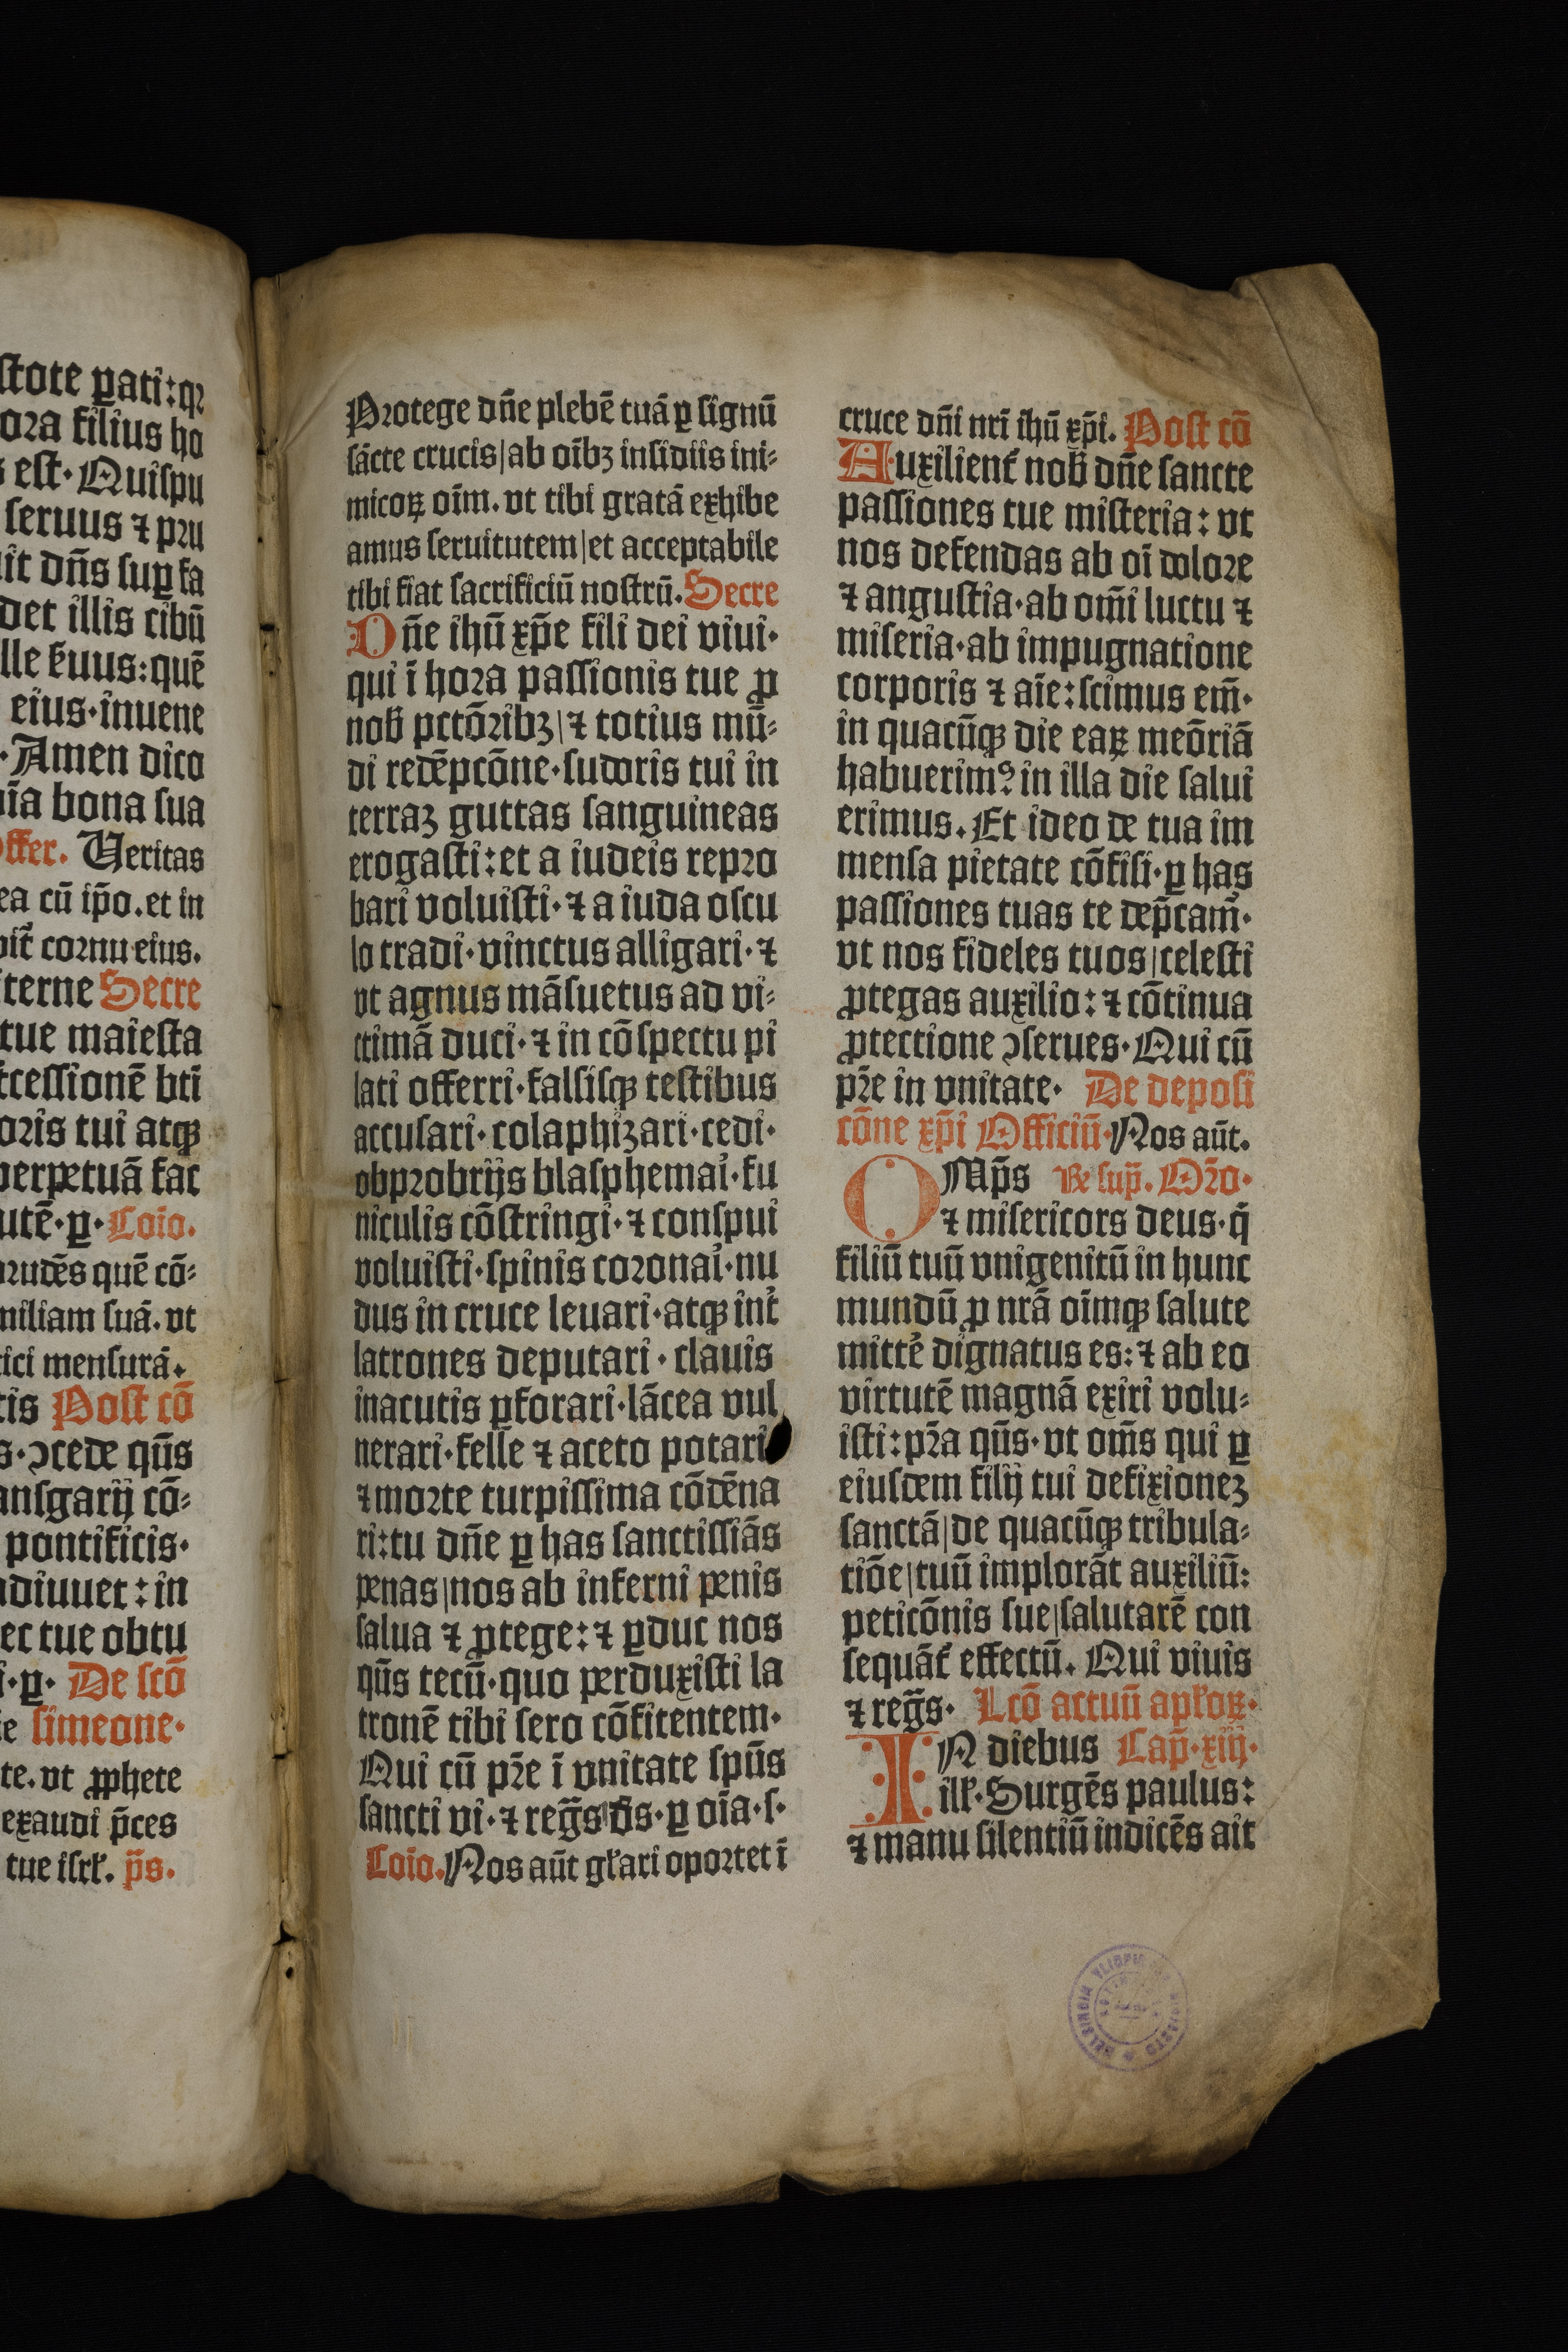 stote ꝑati: qꝛ
ora filius ho
s est· Quispu
seruus ⁊ pꝛu
it dn̄s suꝑ fa
det illis cibū
lle ẜuus: quē
eius· inuene
· Amen dico
īa bona sua
offer. Ueritas
ea cū ip̄o. et in
bit᷑ coꝛnu eius.
terne Secre
tue maiesta
cessionē bti̅
oꝛis tui atqꝫ
perpetuā fac
utē· ꝑ· Cōio.
ꝛudēs quē cō⸗
miliam suā. vt
ici mensurā.
tis Post cō
s· ꝯcede qūs
ansgarij cō⸗
pontificis·
adiuuet: in
ec tue obtu
i· ꝑ· De scō
ie simeone·
te. vt ꝓphete
exaudi p̄ces
tue isrł. p̄s.
Pꝛotege dn̄e plebē tuā ꝑ signū
sācte crucis|ab oībꝫ insidiis ini⸗
micoꝝ oīm. vt tibi gratā exhibe
amus seruitutem|et acceptabile
tibi fiat sacrificiū nostrū. Secre
Dn̄e ihū xp̄e fili dei viui·
qui ī hoꝛa passionis tue ꝓ
nob̄ pctōꝛibꝫ|⁊ totius mū⸗
di redēpcōne· sudoris tui in
terraꝫ guttas sanguineas
erogasti: et a iudeis repꝛo
bari voluisti· ⁊ a iuda oscu
lo tradi· vinctus alligari· ⁊
vt agnus māsuetus ad vi⸗
ctimā duci· ⁊ in cōspectu pi
lati offerri· falsisqꝫ testibus
accusari· colaphiꝫari· cedi·
obpꝛobrijs blasphemaꝛ̓i· fu
niculis cōstringi· ⁊ conspui
voluisti· spinis coꝛonaꝛ̓i· nu
dus in cruce leuari· atqꝫ int̓
latrones deputari· clauis
inacutis ꝑfoꝛari· lācea vul
nerari· felle ⁊ aceto potari
⁊ moꝛte turpissima cōdēna
ri: tu dn̄e ꝑ has sanctissiās
penas|nos ab inferni penis
salua ⁊ ꝓtege: ⁊ ꝑduc nos
qūs tecū· quo perduxisti la
tronē tibi sero cōfitentem·
Qui cū pꝛ̄e ī vnitate spūs
sancti vi· ⁊ reḡs d̄s· ꝑ oīa· s·
Cōio. Nos aūt gło̅ari opoꝛtet ī
cruce dn̄i nr̄i ihū xp̄i. Post cō
Auxilient᷑ nob̄ dn̄e sancte
passiones tue misteria: vt
nos defendas ab oī doloꝛe
⁊ angustia· ab om̄i luctu ⁊
miseria· ab impugnatione
coꝛporis ⁊ aīe: scimus em̄·
in quacūqꝫ die eaꝝ meōꝛiā
habuerimꝰ: in illa die salui
erimus. Et ideo de tua im
mensa pietate cōfisi· ꝑ has
passiones tuas te dep̄cam̄·
vt nos fideles tuos|celesti
ꝓtegas auxilio: ⁊ cōtinua
ꝓtectione ꝯserues· Qui cū
pꝛ̄e in vnitate· De deposi
cōne xp̄i Officiū· Nos aūt.
OMp̄s Re sup̄. Oꝛ̄o·
⁊ misericors deus· q̄
filiū tuū vnigenitū in hunc
mundū ꝓ nrā oīmqꝫ salute
mitte᷑ dignatus es: ⁊ ab eo
virtutē magnā exiri volu⸗
isti: pꝛ̄a qūs· vt om̄s qui ꝑ
eiusdem filij tui defixioneꝫ
sanctā|de quacūqꝫ tribula⸗
tiōe|tuū implorāt auxiliū:
peticōnis sue|salutarē con
sequāt᷑ effectū. Qui viuis
⁊ reḡs· Lcō actuū apłoꝝ·
IN diebus Cap̄· xiij·
ilł· Surgēs paulus:
⁊ manu silentiū indicēs ait